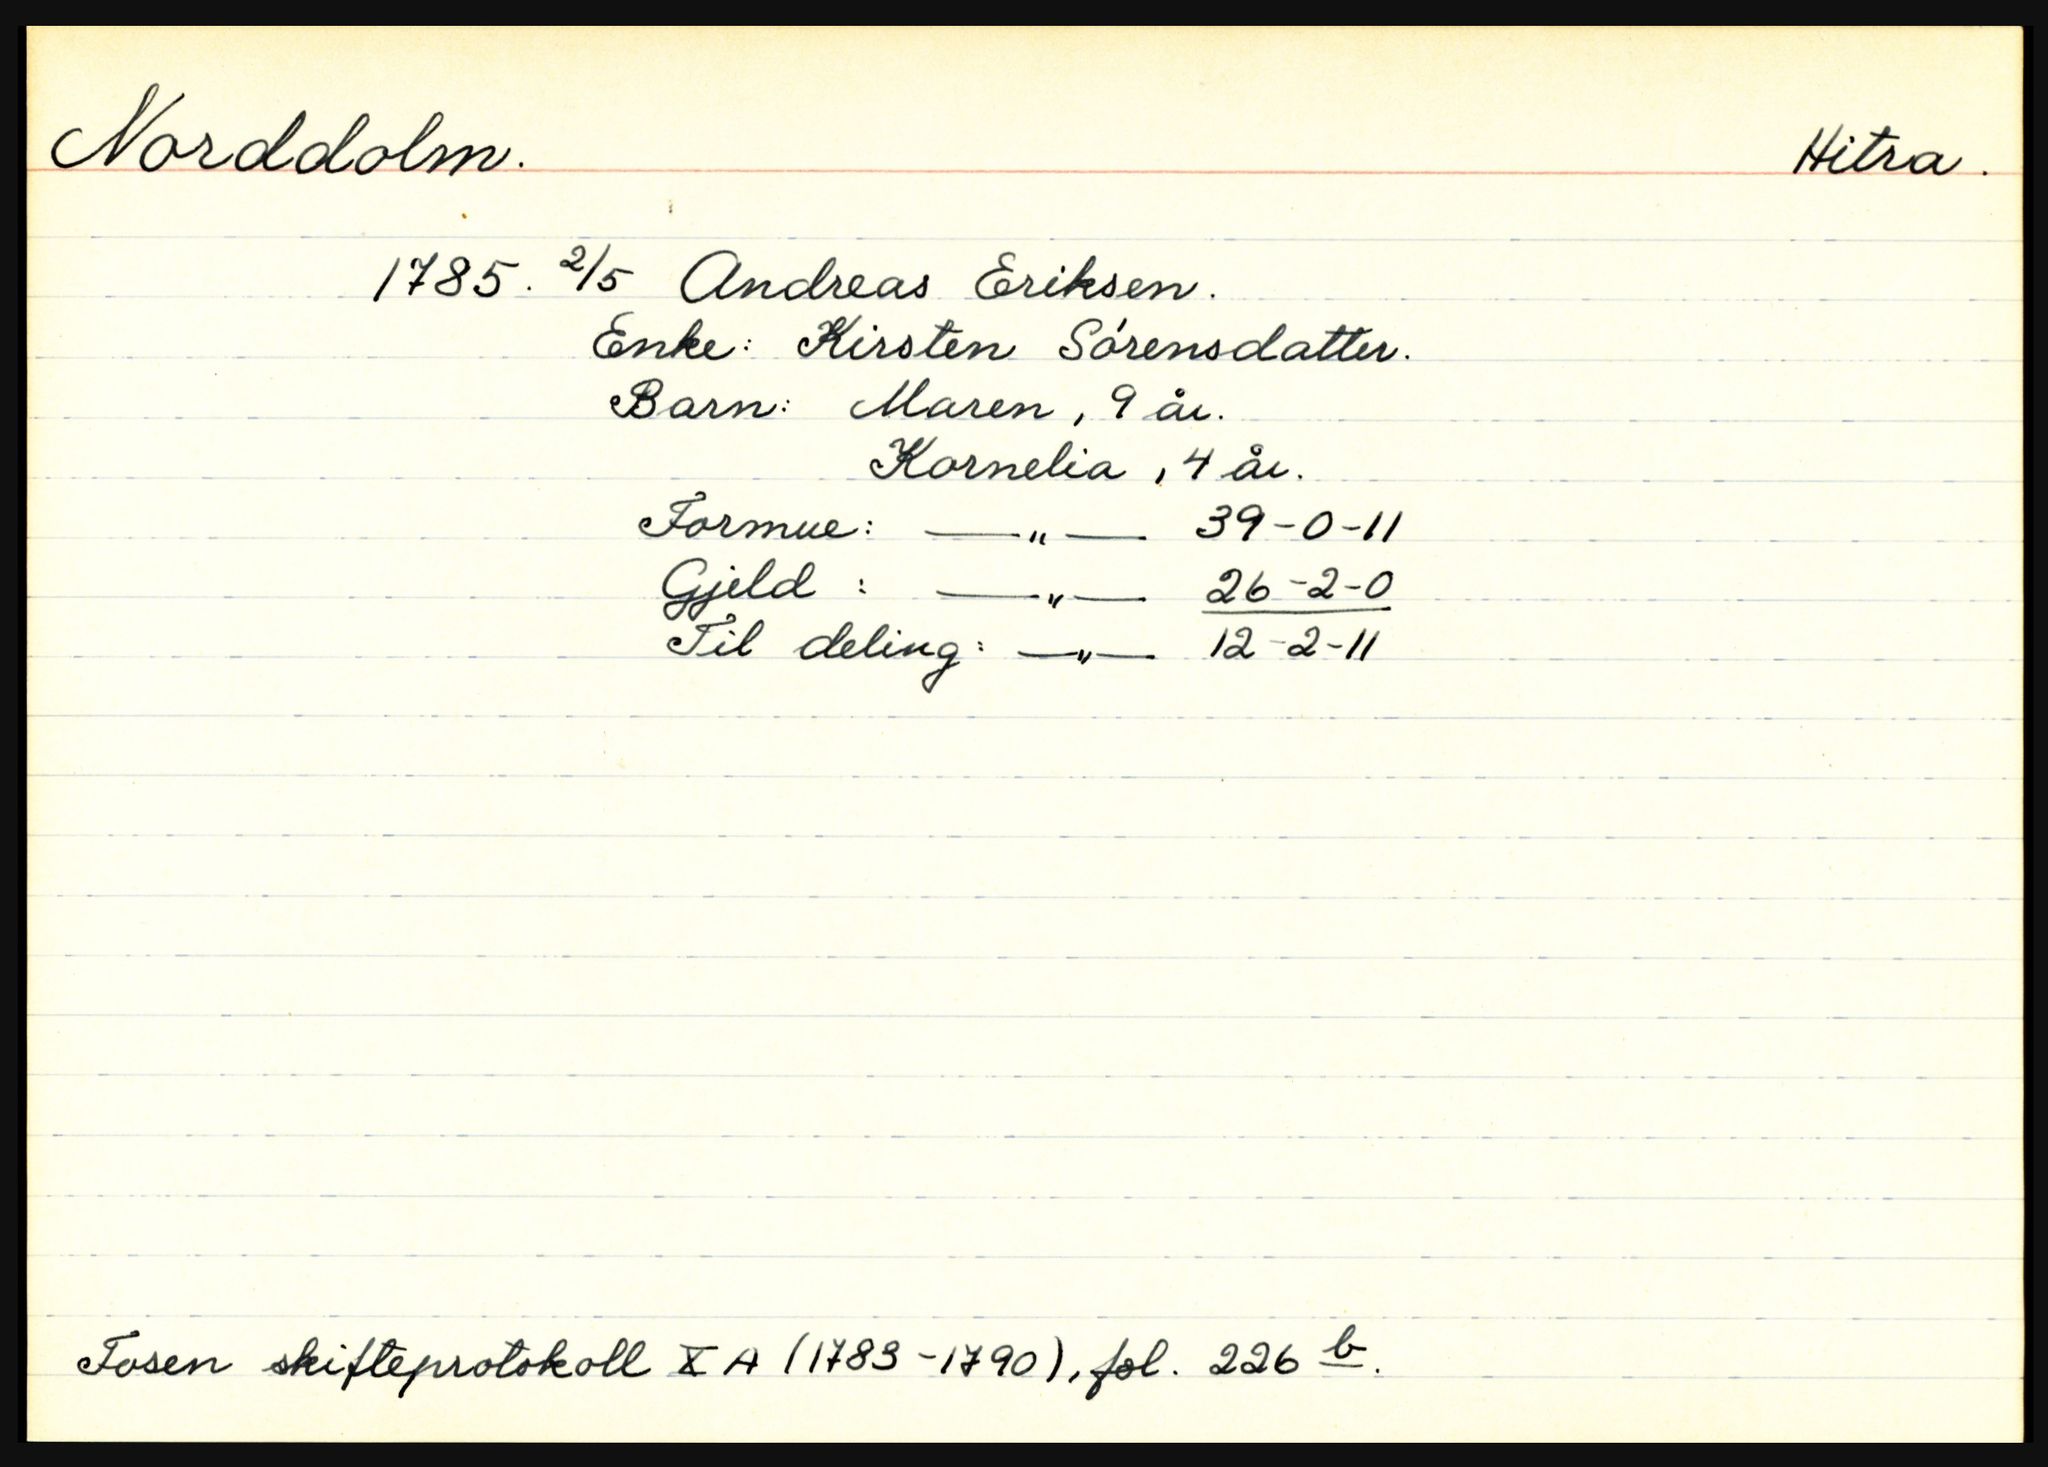 Norddolm. Hitra.
1785. 2/5 Andreas Eriksen.
Enke: Kirsten Sórensdatter.
Barn: Maren, 9 år.
Kornelia, 4 år.
Formue: —〃— 39-0-11
Gjeld: —〃— 26-2-0
Til deling: —〃— 12-2-11
Fosen skifteprotokoll X A (1783-1790), fol. 226 b.